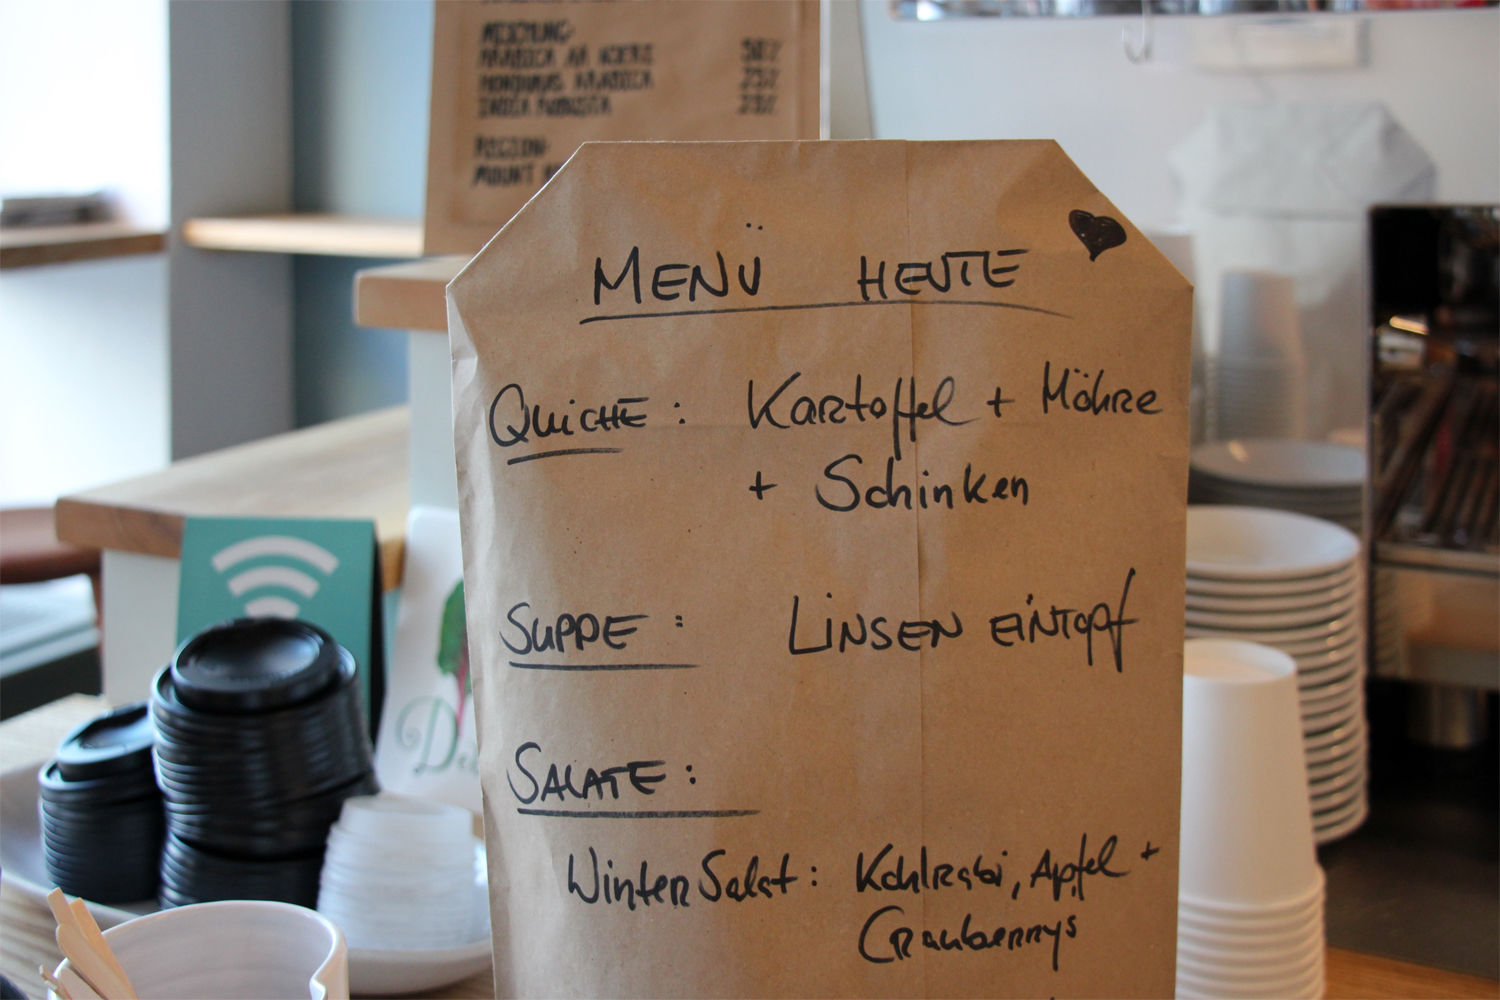 MISCHUNG:
ARABICA AA KOERI 50%
HONDURAS ARABICA 25%
INDIA ROBUSTA 25%
REGION:
MOUNT
MENÜ HEUTE
QUICHE: Kartoffel + Möhre
+ Schinken
SUPPE: LINSEN EINTOPF
SALATE:
Winter Salat: Kohlrabi, Apfel +
Cranberrys